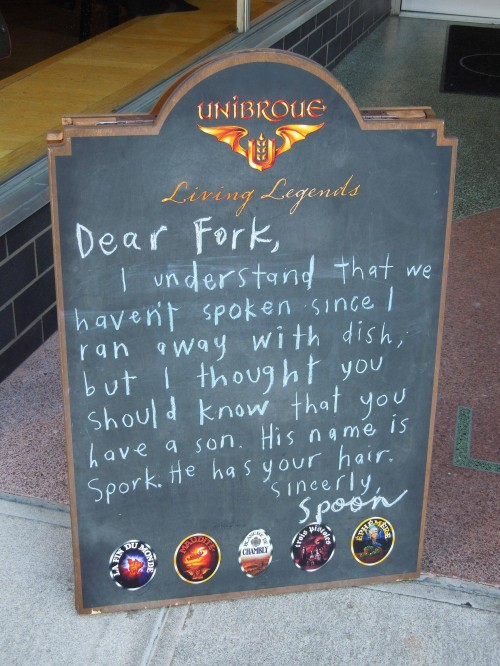 UNIBROUE
Living Legends
Dear Fork,
I understand that we
haven't spoken since I
ran away with dish,
but I thought you
should know that you
have a son. His name is
Spork. He has your hair.
Sincerly,
Spoon
LA FIN DU MONDE
MAUDITE
BLANCHE DE CHAMBLY
trois pistoles
ÉPHÉMÈRE